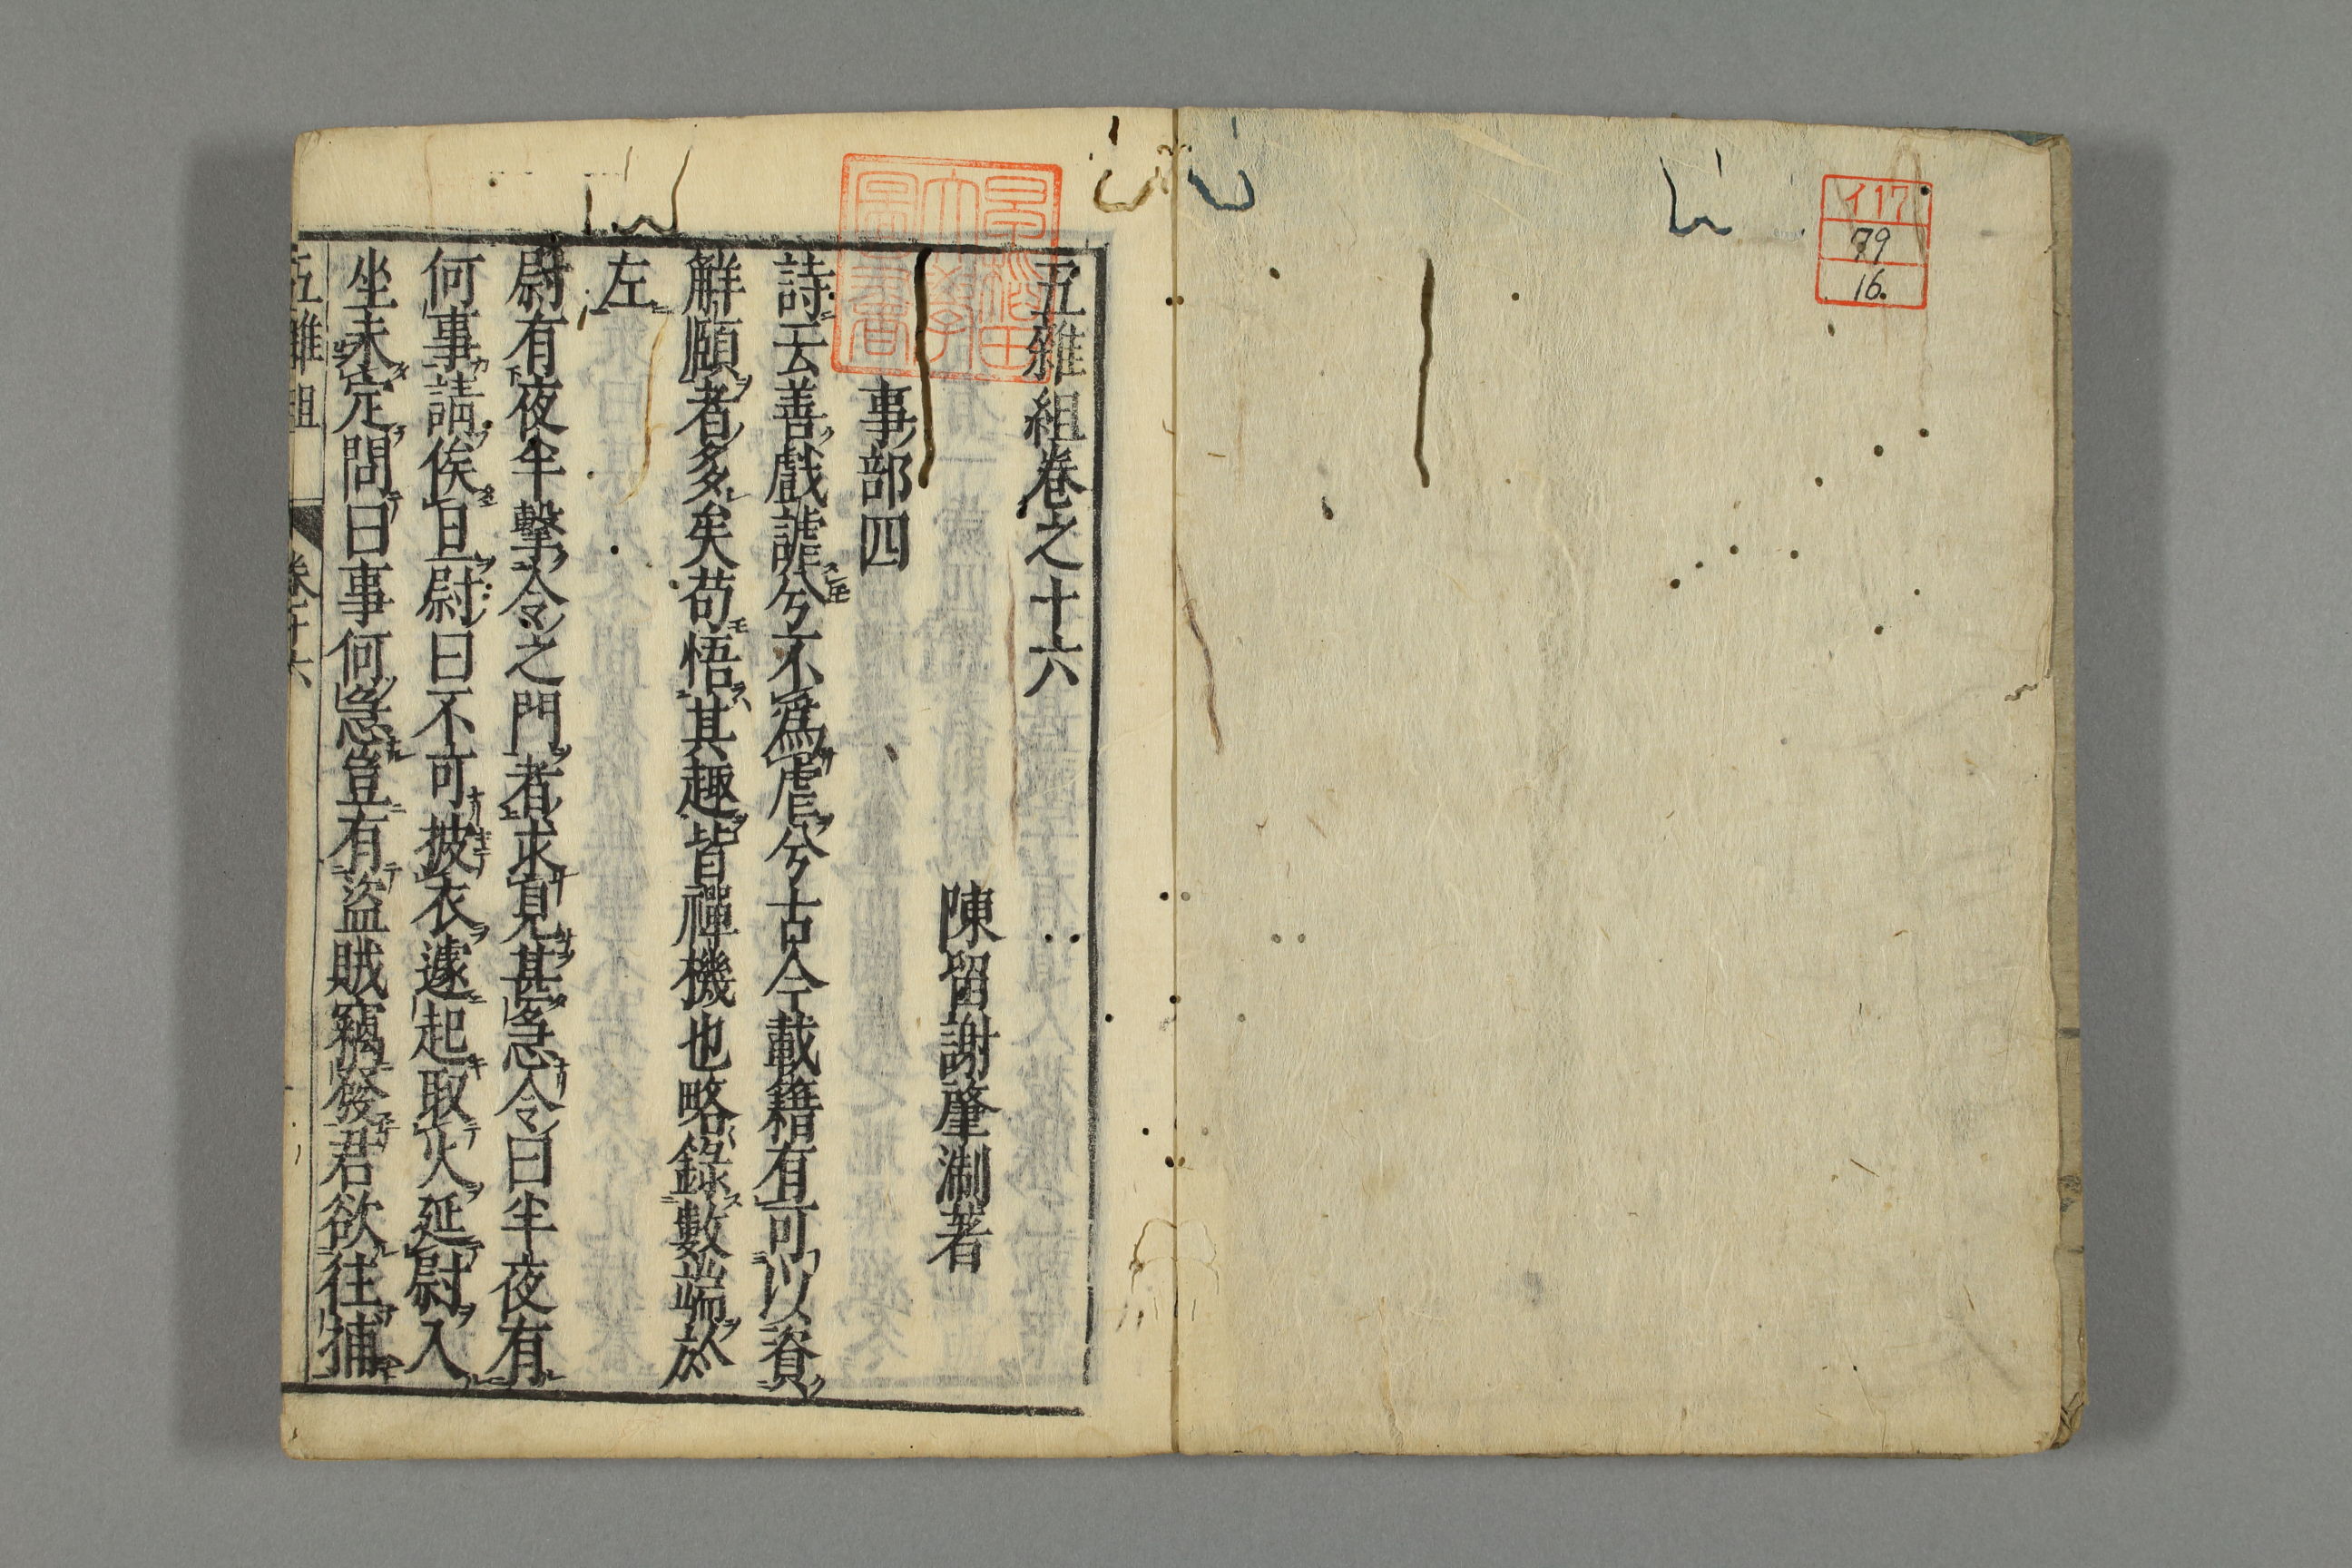 イ117
79
16.
五雜組卷之十六
陳留謝肇淛著
事部四
詩云善戲謔兮不爲虐兮古今載籍有可以資
解頤者多矣苟悟其趣皆禪機也略錄數端於
左
尉有夜半擊令之門者求見甚急令曰半夜有
何事請俟旦尉曰不可披衣遽起取火延尉入
坐未定問曰事何急豈有盜賊竊發君欲往捕
五雜組 卷十六